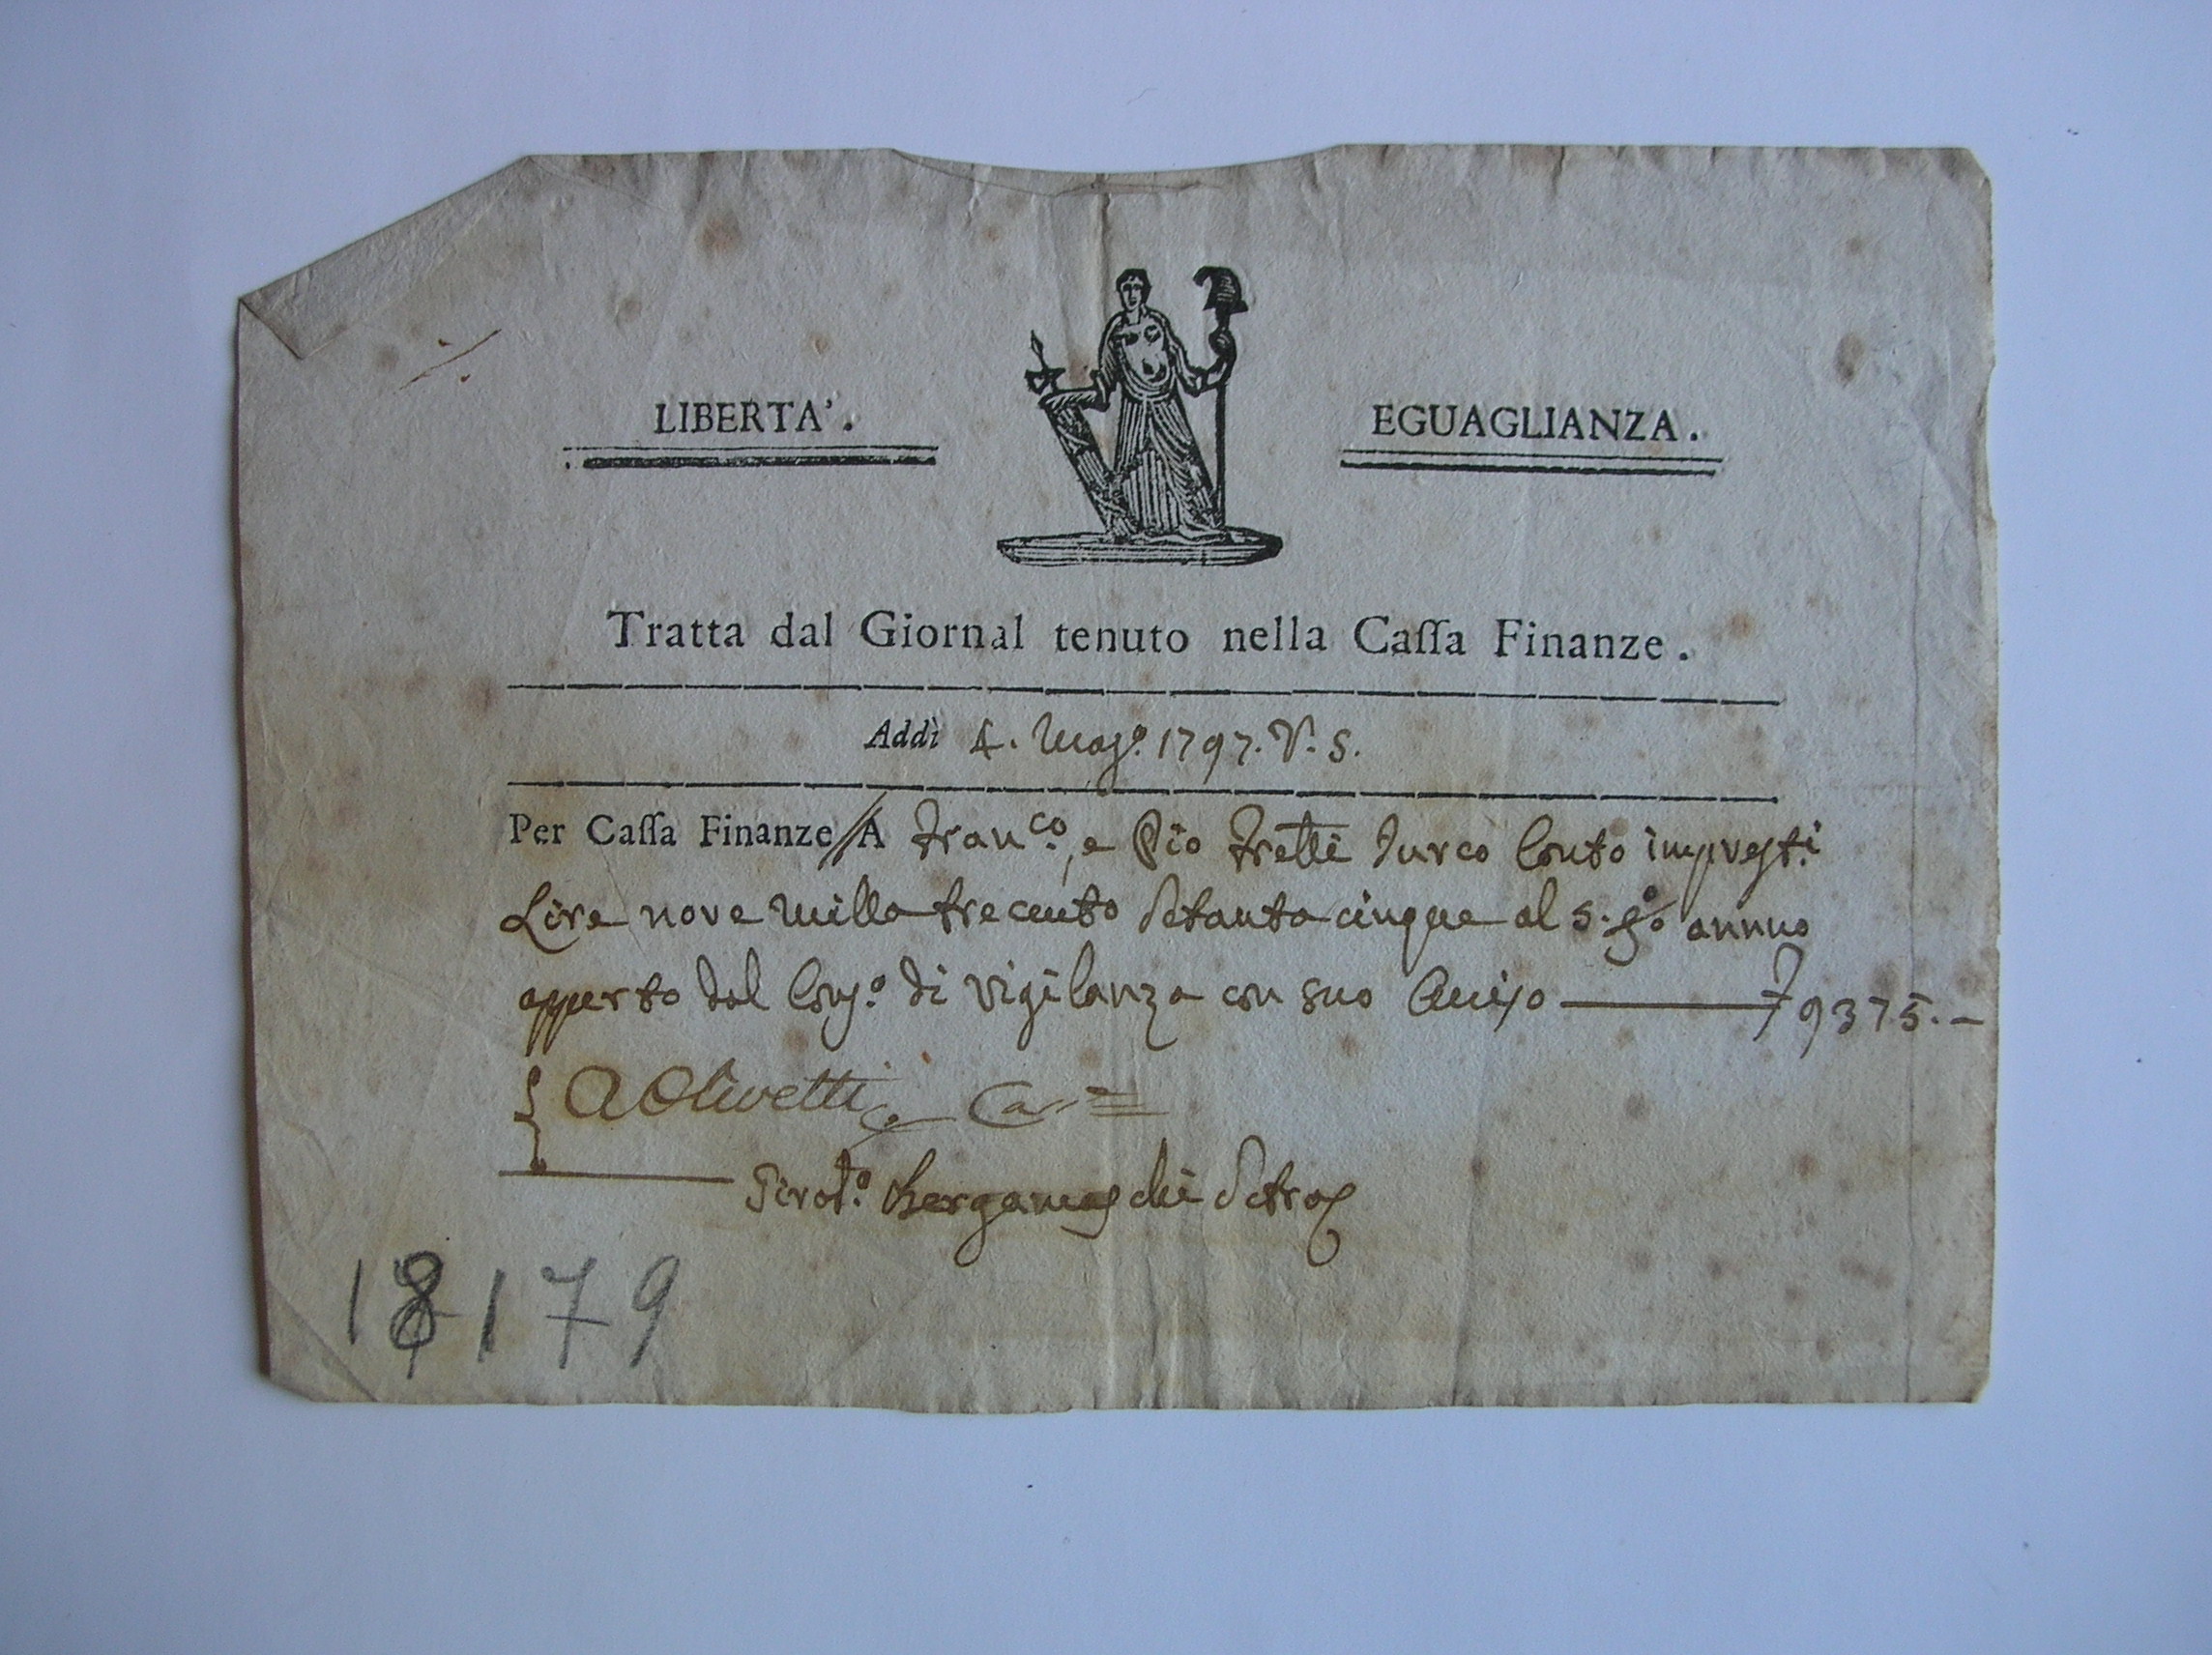 LIBERTA'. EGUAGLIANZA.
Tratta dal Giornal tenuto nella Caſſa Finanze.
Addì 4. Mag.o 1797. V. S.
Per Caſſa Finanze // A Fran.co, e Pio Frẽlli Turco Conto imprest.i
Lire nove mille trecento setanta cinque al 5. p.o annuo
apperto dal Com.o di vigilanza con suo Aviso — 9375.–
A Olivetti Ca
Bergamaschi
18179